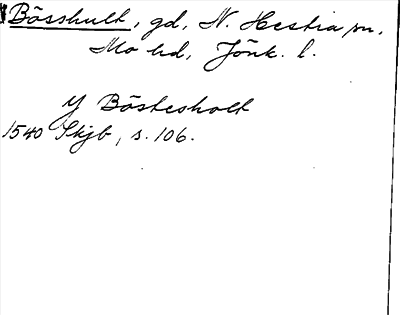 Bösshult, gd, N. Hestra sn,
Mo hd, Jönk. l.
Y Böstesholt
1540 Skjb, s. 106.